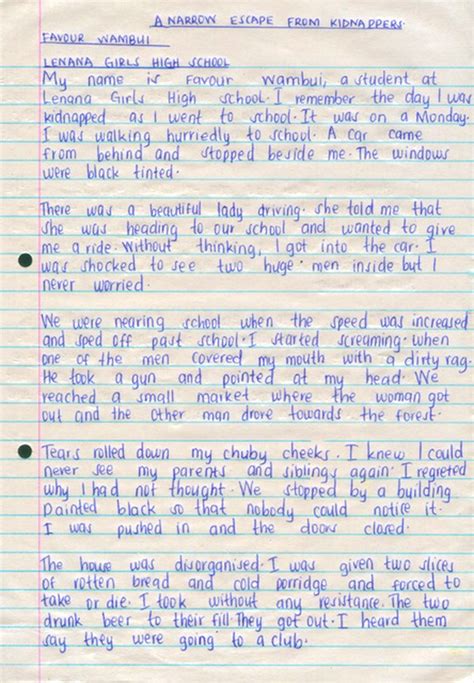 A NARROW ESCAPE FROM KIDNAPPERS.
FAVOUR WAMBUI
LENANA GIRLS HIGH SCHOOL
My name is Favour Wambui, a student at
Lenana Girls High school. I remember the day I was
kidnapped as I went to school. It was on a Monday.
I was walking hurriedly to school. A car came
from behind and stopped beside me. The windows
were black tinted.
There was a beautiful lady driving. she told me that
she was heading to our school and wanted to give
me a ride. Without thinking, I got into the car. I
was shocked to see two huge men inside but I
never worried.
We were nearing school when the speed was increased
and sped off past school. I started screaming. when
one of the men covered my mouth with a dirty rag.
He took a gun and pointed at my head. We
reached a small market where the woman got
out and the other man drove towards the forest.
Tears rolled down my chuby cheeks. I knew I could
never see my parents and siblings again. I regreted
why I had not thought. We stopped by a building
painted black so that nobody could notice it.
I was pushed in and the doors closed.
The house was disorganised. I was given two slices
of rotten bread and cold porridge and forced to
take or die. I took without any resistance. The two
drunk beer to their fill. They got out. I heard them
say they were going to a club.